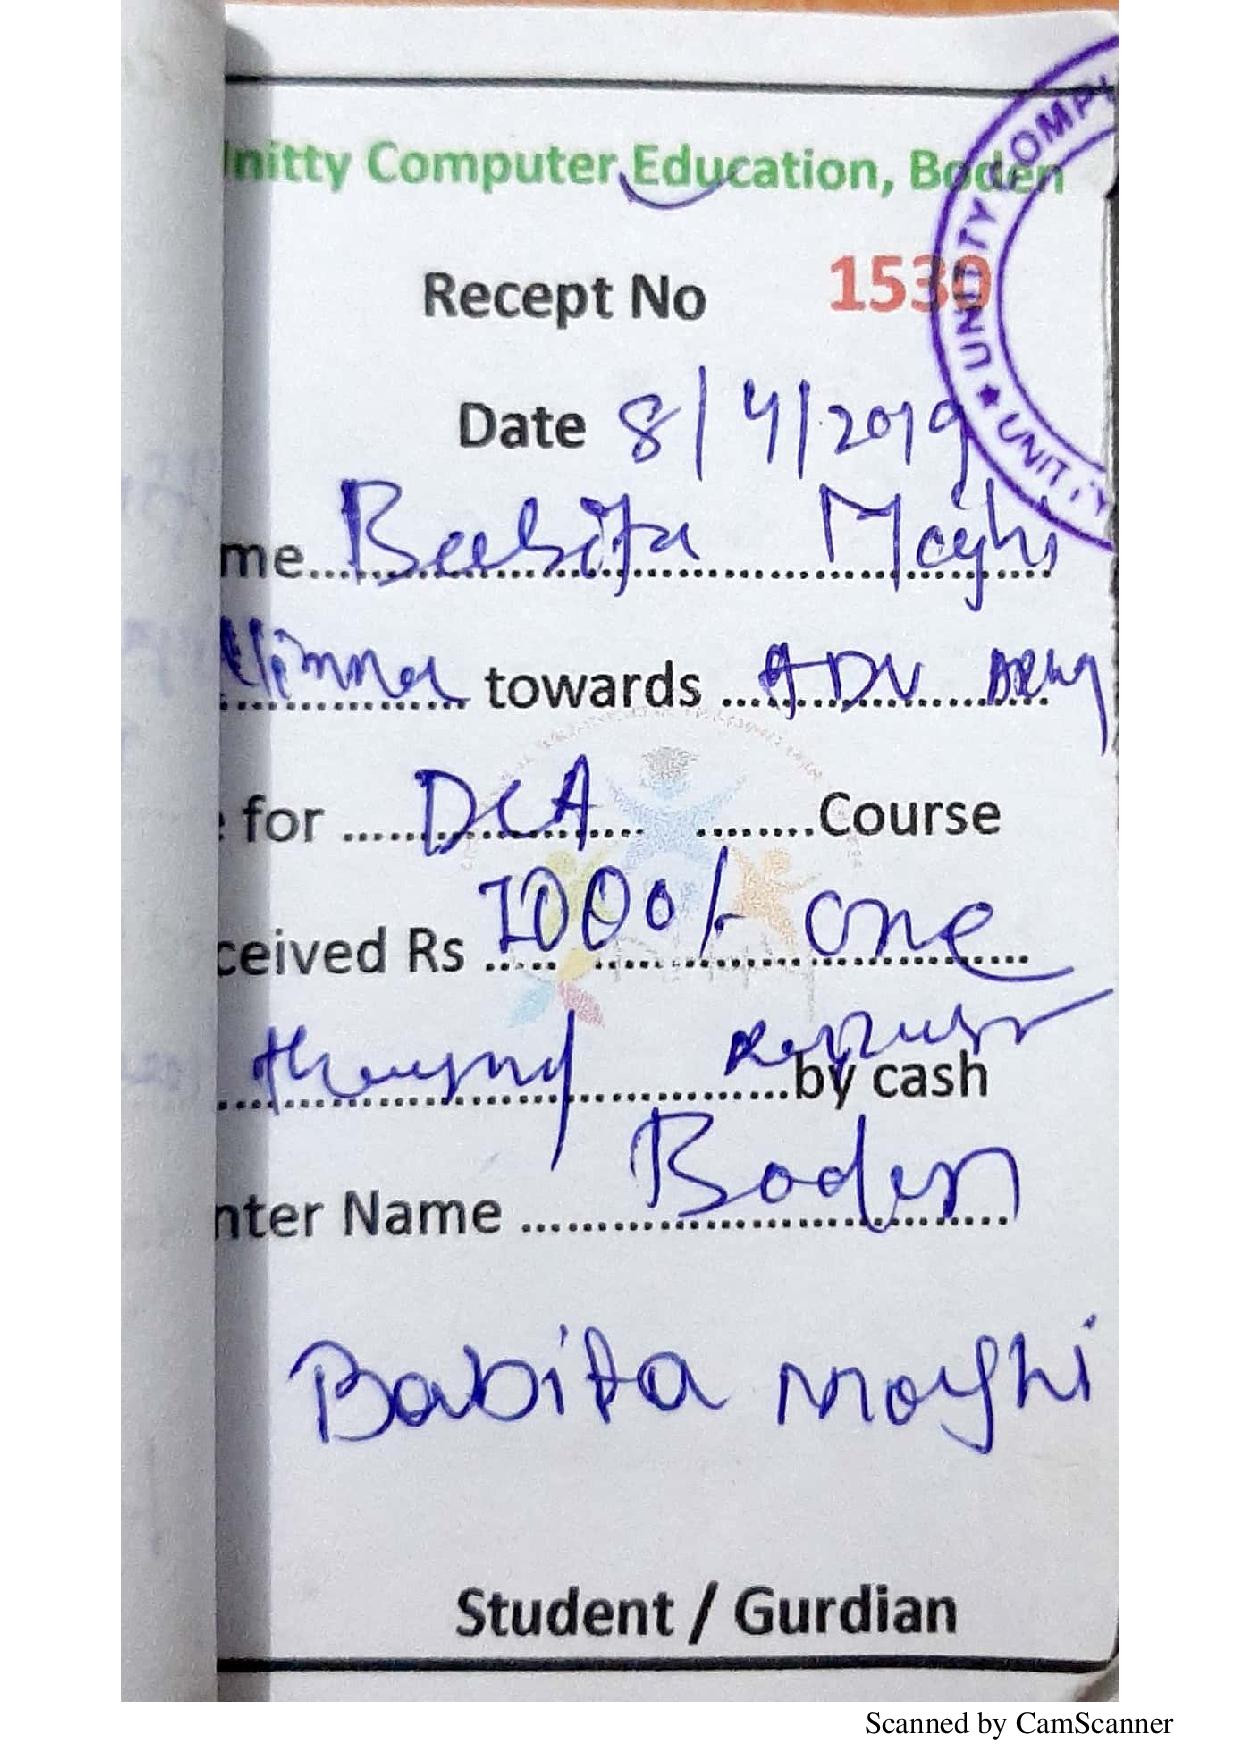 nitty Computer Education, Boden
Recept No 1530
Date 8/4/2019
me Babita Majhi
towards ADV
for DCA Course
ceived Rs 1000/- one
thousand by cash
nter Name Boden
Babita majhi
Student / Gurdian
UNITY COMP
UNITY
Scanned by CamScanner